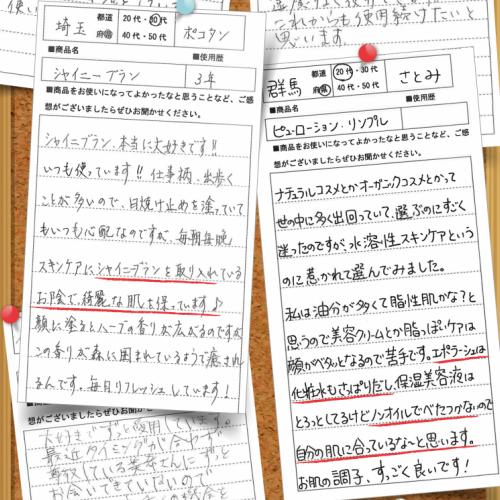 埼玉
都道
府県
20代・30代
40代・50代
ポコタン
■商品名
■使用歴
シャイニーブラン
3年
■商品をお使いになってよかったなと思うことなど、ご感
想がございましたらぜひお聞かせください。
シャイニブラン、本当に大好きです!!
いつも使っています!! 仕事柄、出歩く
ことが多いので、日焼け止めを塗っていて
もいつも心配なのですが、毎朝毎晩
スキンケアに、シャイニブランを取り入れている
お陰で、綺麗な肌を保っています♪
顔に塗るとハーブの香りが広がるのですが
この香りが森に囲まれているようで癒され
るんです。毎日リフレッシュしています!
これからも使用続けたいと
思います
群馬
都道
府県
20代・30代
40代・50代
さとみ
■商品名
■使用歴
ピュ・ローション・リンプル
■商品をお使いになってよかったなと思うことなど、ご感
想がございましたらぜひお聞かせください。
ナチュラルコスメとかオーガニックコスメとかって
世の中に多く出回っていて、選ぶのにすごく
迷ったのですが、水溶性スキンケアという
のに惹かれて選んでみました。
私は油分が多くて脂性肌かな?と
思うので美容クリームとか脂っぽいケアは
顔がベタッとなるので苦手です。エポラーシュは
化粧水もさっぱりだし、保湿美容液は
とろっとしてるけどノンオイルでべたつかないので
自分の肌に合っているな〜と思います。
お肌の調子、すっごく良いです!
■商品をお使いになってよかったなと思うことなど、ご感
想がございましたらぜひお聞かせください。
最近タイミングが合わず